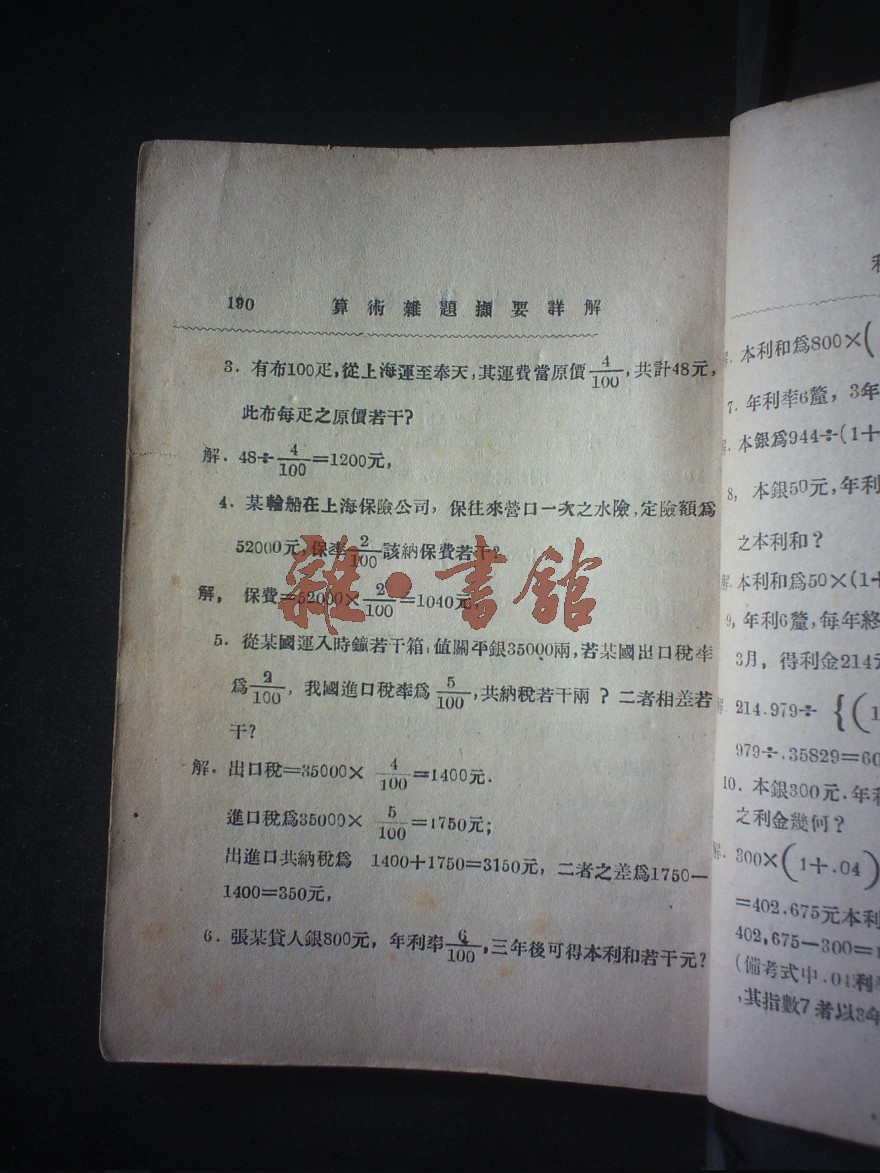 190 算術雜題擷要詳解
3. 有布100疋,從上海運至奉天,其運費當原價 4/100,共計48元,
此布每疋之原價若干?
解. 48÷ 4/100 =1200元,
4. 某輪船在上海保險公司, 保往來營口一次之水險,定險額爲
52000元,保率 2/100 該納保費若干?
解, 保費=52000× 2/100 =1040元,
5. 從某國運入時鐘若干箱,值關平銀35000兩,若某國出口稅率
爲 2/100, 我國進口稅率爲 5/100,共納稅若干兩 ? 二者相差若
干?
解. 出口稅=35000× 4/100 =1400元.
進口稅爲35000× 5/100 =1750元;
出進口共納稅爲 1400+1750=3150元, 二者之差爲1750—
1400=350元,
6. 張某貸人銀800元, 年利率 6/100,三年後可得本利和若干元?
雜·書館
本利和爲800×(
7. 年利率6釐, 3年
本銀爲944÷(1+
8, 本銀50元,年利
之本利和?
解.本利和爲50×(1+
9, 年利6釐,每年終
3月, 得利金214元
214.979÷ {(1
979÷.35829=60
10. 本銀300元.年利
之利金幾何?
解. 300×(1+.04)
=402.675元本利
402,675—300=
(備考式中.04利率
,其指數7者以3年